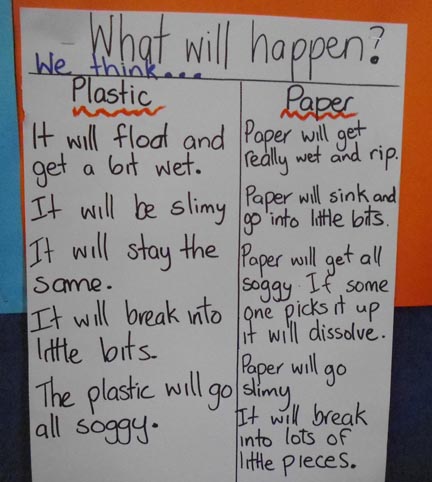 What will happen?
We think...
Plastic
It will float and
get a bit wet.
It will be slimy
It will stay the
same.
It will break into
little bits.
The plastic will go
all soggy.
Paper
Paper will get
really wet and rip.
Paper will sink and
go into little bits.
Paper will get all
soggy. If some
one picks it up
it will dissolve.
Paper will go
slimy
It will break
into lots of
little pieces.